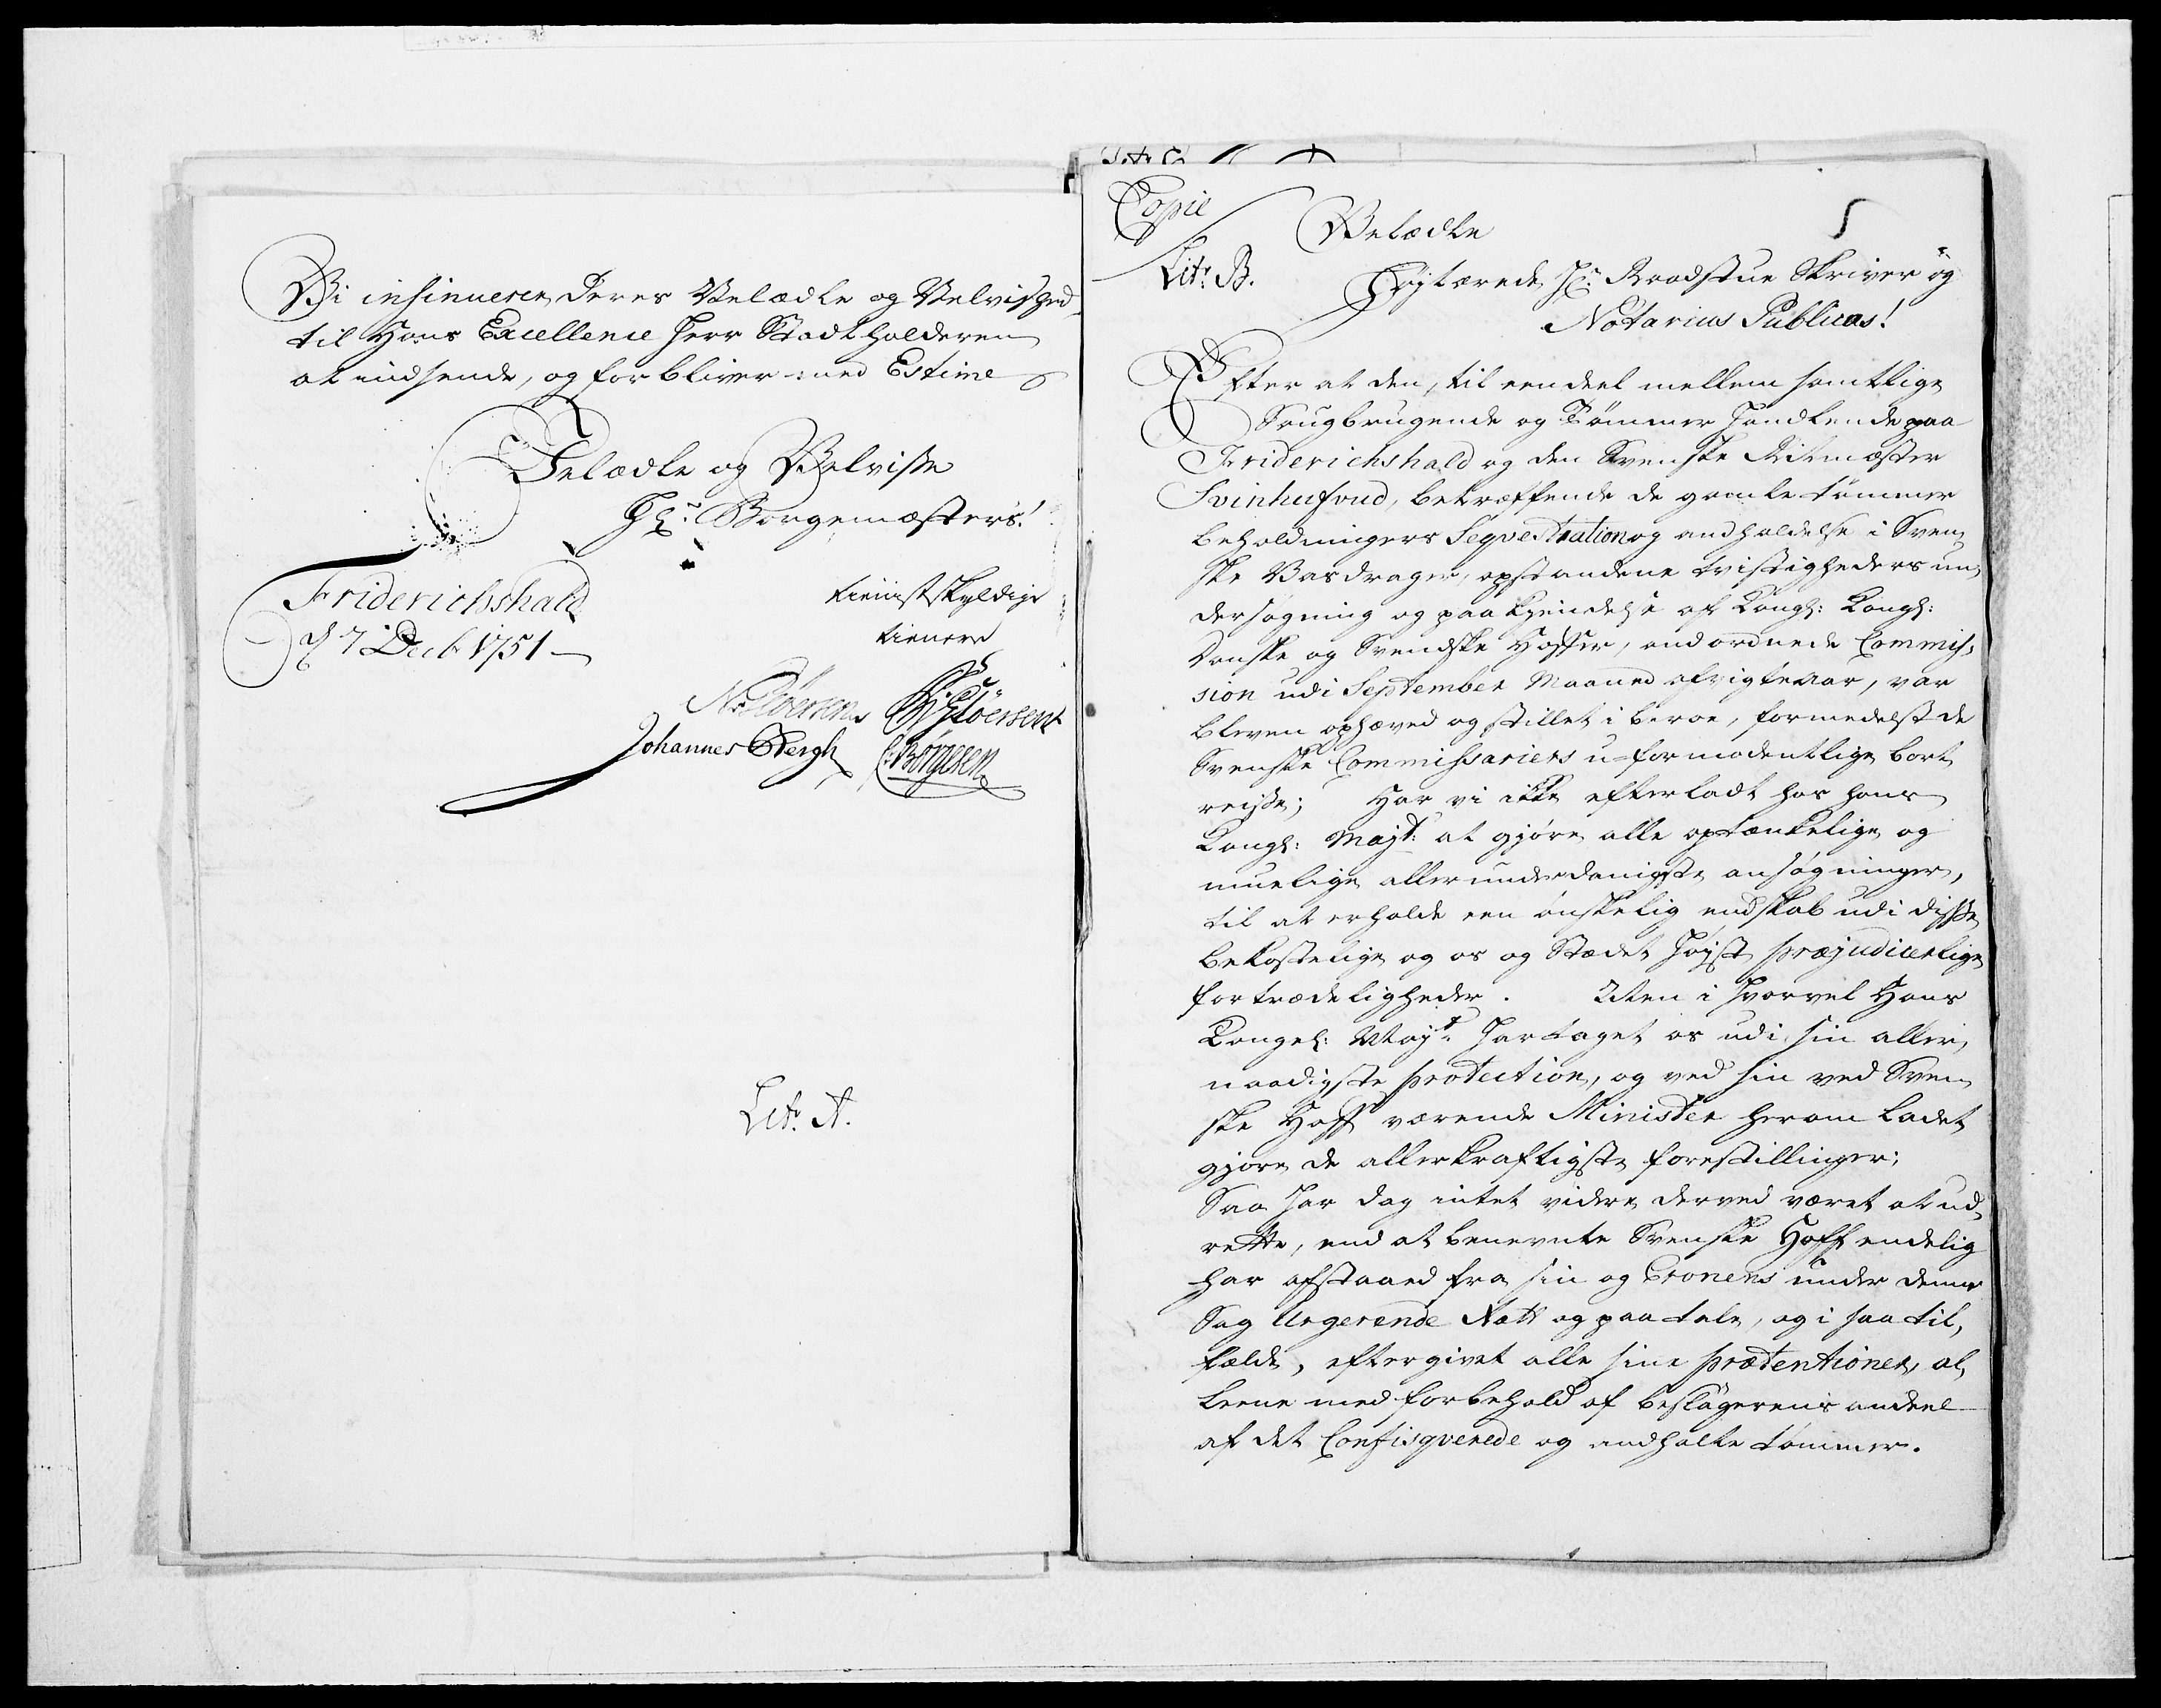 Vi insinuerer Deres Velædle og Velvished
til Hans Excellence Herr Stadtholderen
at indsende, og forbliver med Estime
Velædle og Velvise
Hr. Borgemæsters!
Friderichshald
d 7 Decb 1751
tienistskyldige
tienere
N: Stoersen
Stoersen
Johannes Bergh
C: Börgesen
Litr. A.
Copie
Litr. B.
Velædle
Højlærede Hr. Raadstue Skriver og
Notarius Publicus!
Efter at den, til eendeel mellem samtlige
Saugbrugende og Tømmer Handlende paa
Friderichshald og den Svenske Ritmæster
Svinhufvud, betræffende de gamle tømmer
beholdningers Seqvestration og andholdelse i Sven,
ske Vasdrager, opstandene tvistigheders un,
dersøgning og paakjendelse af Kongl: Kongl:
Danske og Svendske Hoffer, andordnede Commis,
sion udi September Maaned afvigte aar, var
bleven ophæved og stillet i beroe, formedelst de
Svenske Commissariers u-formodentlige bort
rejse; Har vi ikke efterladt hos hans
Kongl: Majt: at gjøre alle optænkelige og
muelige allerunderdanigste ansøgninger,
til at erholde een ønskelig endskab udi disse
bekostelige og os og Stædet højst præjudicerlige
fortrædeligheder. Men i hvorvel Hans
Kongel: Majt: har taget os udi sin aller,
naadigste protection, og ved sin ved Sven
ske Hoff værende Minister herom ladet
gjøre de allerkraftigste forestillinger;
Saa har dog intet videre derved været at ud,
rette, end at benevnte Svenske Hoff endelig
har afstaaed fra sin og Cronens under denne
Sag urgerende Rætt og paatale, og i saa til,
fælde, eftergivet alle sine prætentioner, al,
leene med forbehold af beslagerens andeel
af det Confisqverede og andholte tømmer.